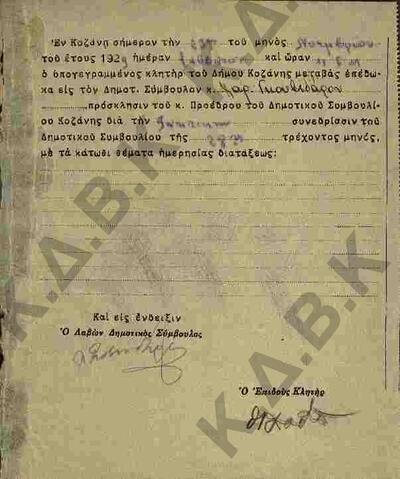 Ἐν Κοζάνῃ σήμερον τὴν 23ην τοῦ μηνὸς Νοεμβρίου
τοῦ ἔτους 1929 ἡμέραν Σάββατον καὶ ὥραν
ὁ ὑπογεγραμμένος κλητὴρ τοῦ Δήμου Κοζάνης μεταβὰς ἐπέδω-
κα εἰς τὸν Δημοτ. Σύμβουλον κ. Χαρ.
πρόσκλησιν τοῦ κ. Προέδρου τοῦ Δημοτικοῦ Συμβουλί-
ου Κοζάνης διὰ τὴν συνεδρίασιν τοῦ
Δημοτικοῦ Συμβουλίου τῆς τρέχοντος μηνός,
μὲ τὰ κάτωθι θέματα ἡμερησίας διατάξεως:
Καὶ εἰς ἔνδειξιν
Ὁ Λαβὼν Δημοτικὸς Σύμβουλος
Ὁ Ἐπιδοὺς Κλητὴρ
Κ.Δ.Β.Κ
Κ.Δ.Β.Κ